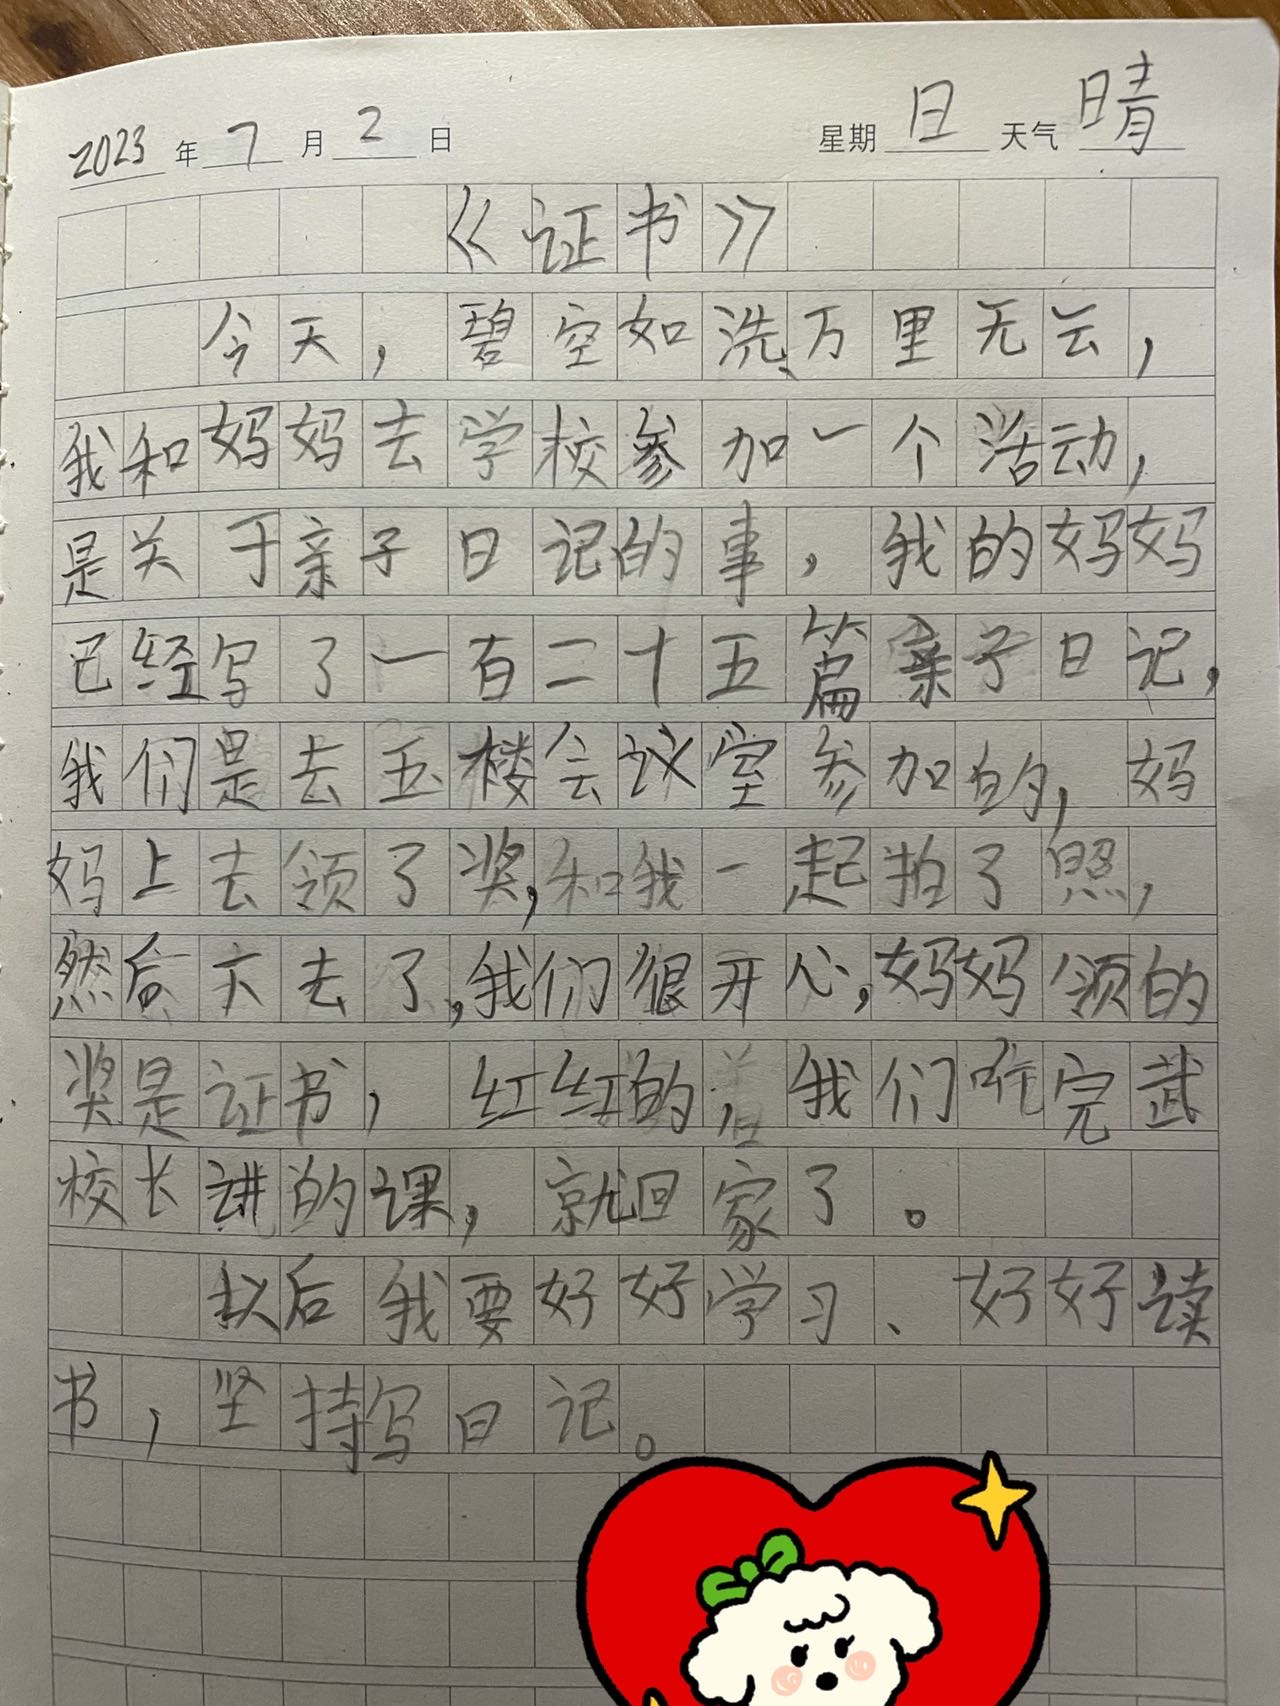 2023年7月2日 星期日 天气晴
《证书》
今天，碧空如洗、万里无云，
我和妈妈去学校参加一个活动，
是关于亲子日记的事，我的妈妈
已经写了一百二十五篇亲子日记，
我们是去五楼会议室参加的，妈
妈上去领了奖，和我一起拍了照，
然后下去了，我们很开心，妈妈领的
奖是证书，红红的，我们听完武
校长讲的课，就回家了。
以后我要好好学习、好好读
书，坚持写日记。